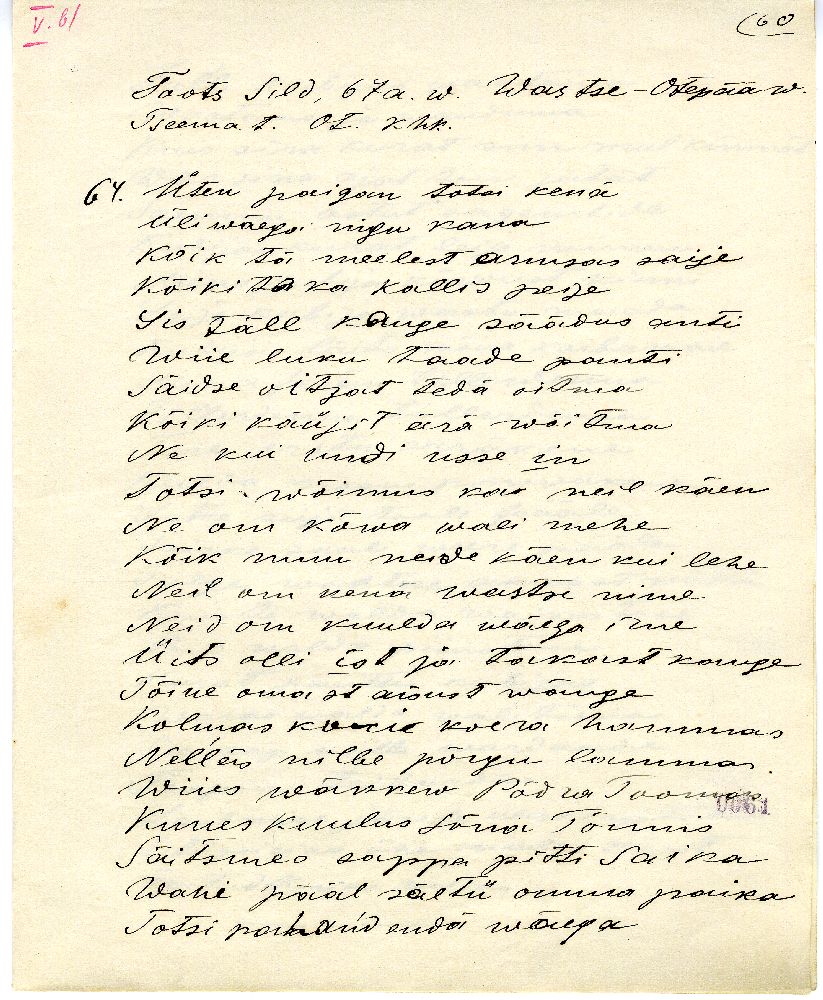 V. 61
(60
Toots Sild, 67 a. w. Wastse-Otepää w.
Tseema t. Ot. khk.
64. Üten paigan totsi kenä
Üliwäega nigu kana
Kõik tä meelest armsas saije
Kõiki tä ka kallis peije
Sis täll kange säädus anti
Wiie luku taade panti
Säidse oitjat tedä oitma
Kõiki käüjit ärä wõitma
Ne kui undi usse in
Totsi wõimus kas neil käen
Ne om kõwa wali mehe
Kõik muu neide käen kui lehe
Neil om kenä wastse nime
Neid om kuulda wäega ime
Üits olli ist ja takast kange
Tõine omast aost wänge
Kolmas koera hammas
Nelläs nilbe põrgu lammas
Wiies wäkkew Põdra Toomas
Kuues kuulus Jõna Tõnnis
Säitsmes sappa pitti Saika
Wahi pääl säetü omma paika
Totsi pahand endä wäega
0061